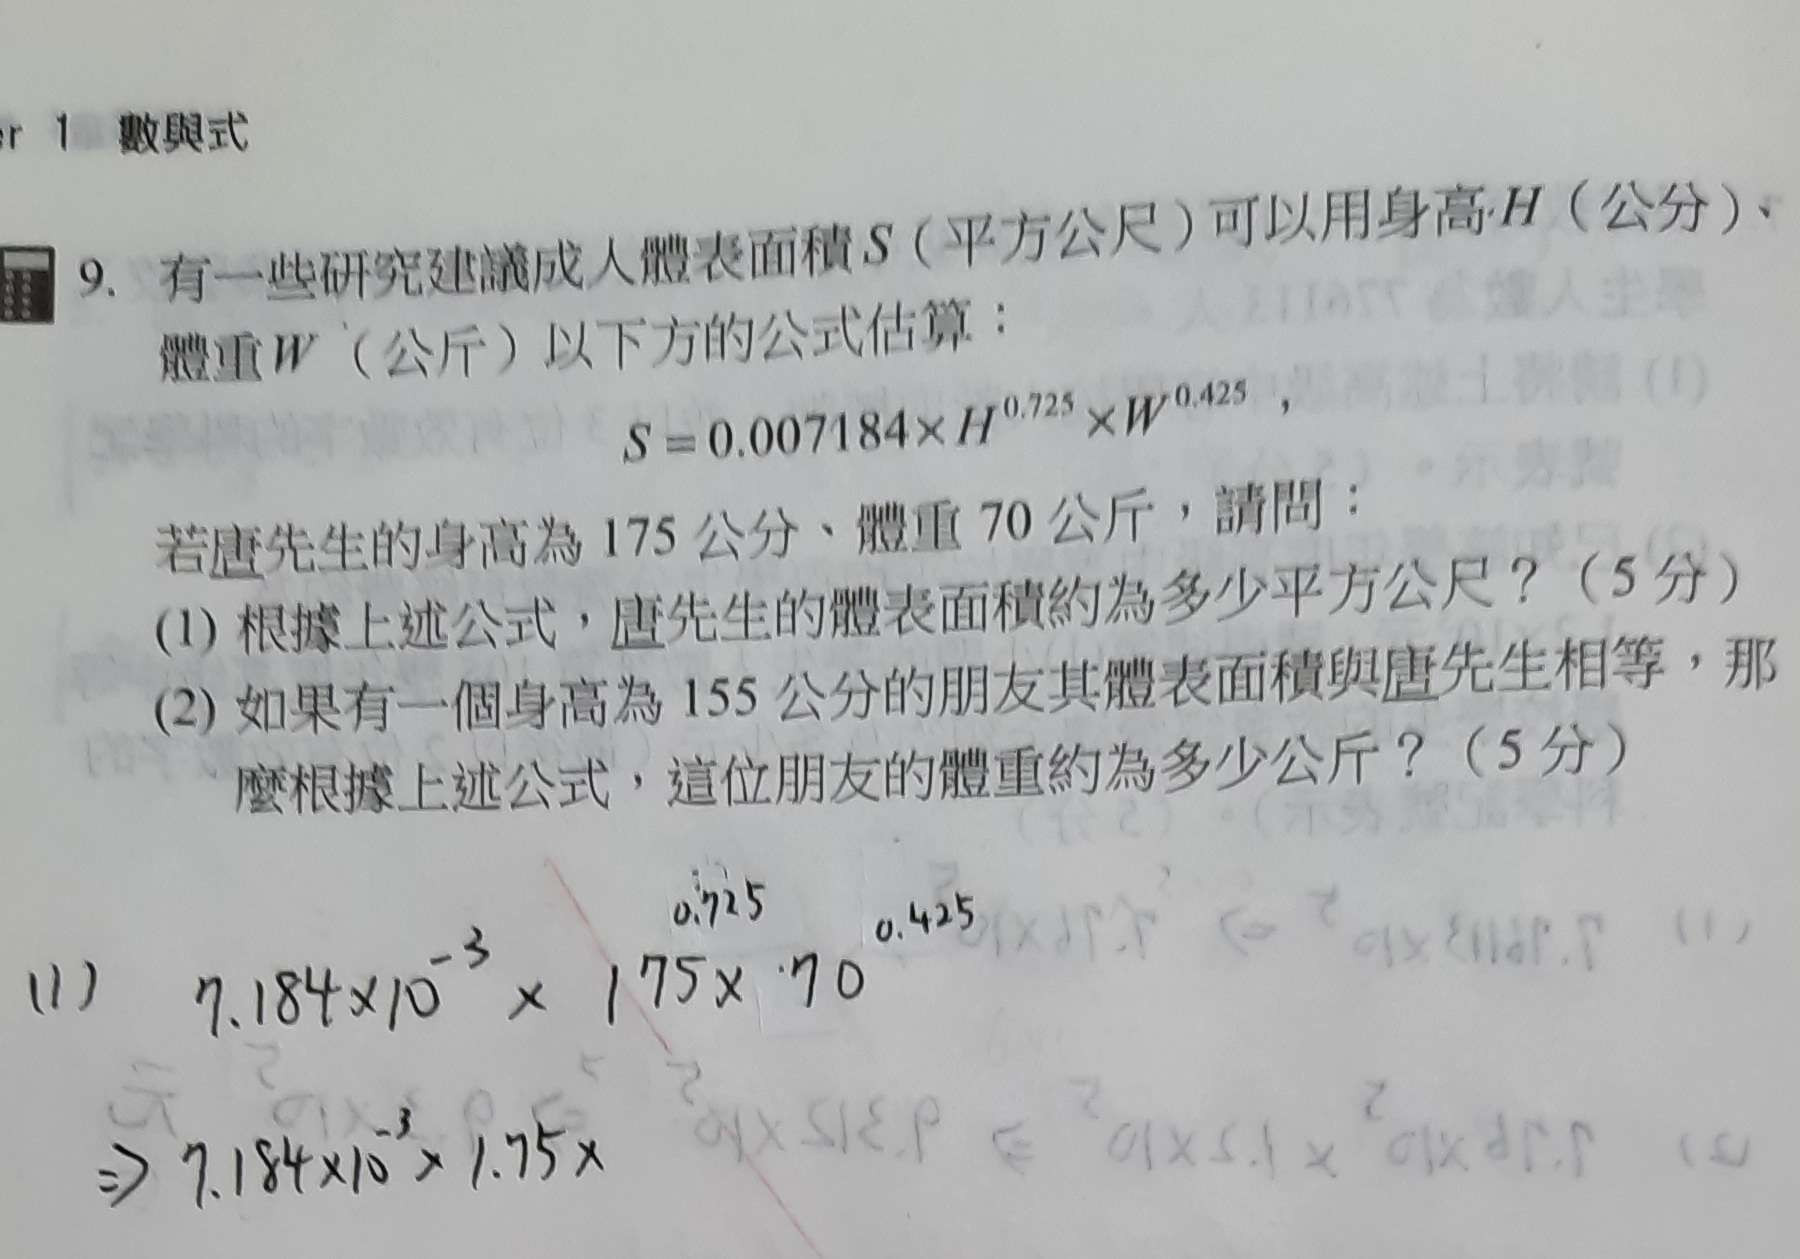 er 1 數與式
9. 有一些研究建議成人體表面積S(平方公尺)可以用身高H(公分)、
體重W(公斤)以下方的公式估算：
S=0.007184×H^0.725×W^0.425，
若唐先生的身高為 175 公分、體重 70 公斤，請問：
(1) 根據上述公式，唐先生的體表面積約為多少平方公尺？(5 分)
(2) 如果有一個身高為 155 公分的朋友其體表面積與唐先生相等，那
麼根據上述公式，這位朋友的體重約為多少公斤？(5 分)
(1) 7.184×10^-3 × 175^0.725 × 70^0.425
⇒ 7.184×10^-3 × 1.75×